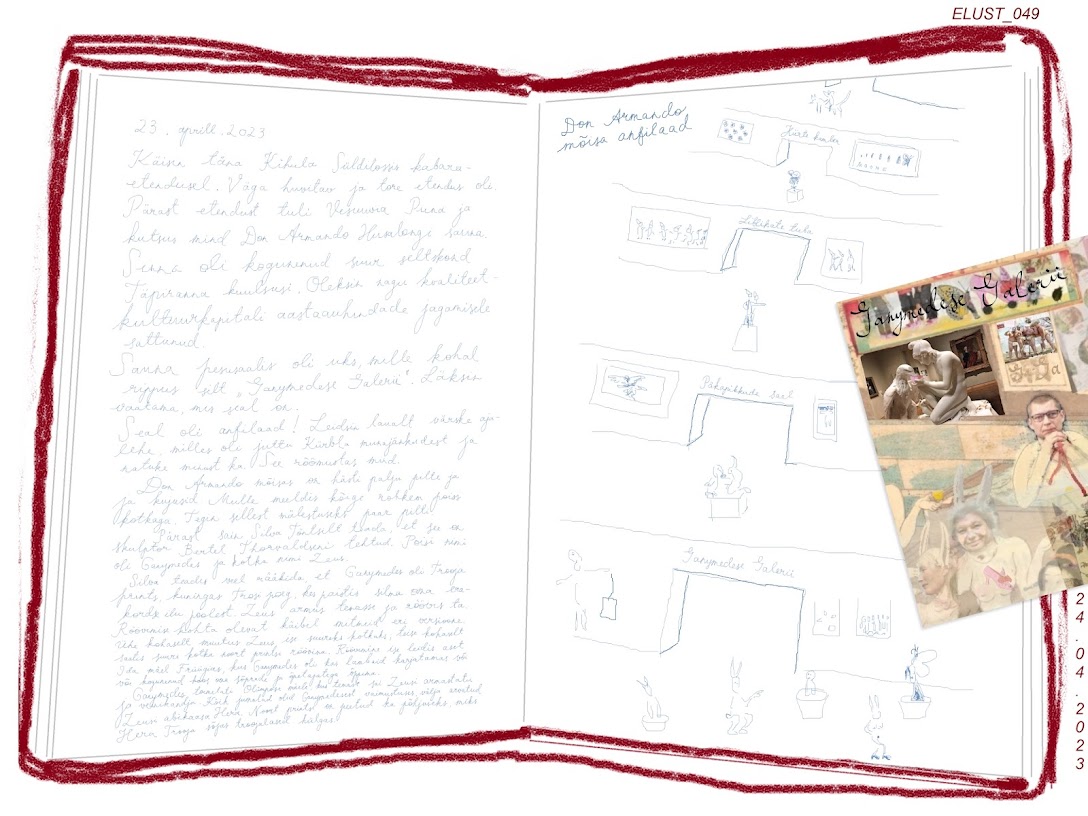 ELUST_049
23. aprill. 2023
Käisin täna Kihula Süldilossis kabaree-
etendusel. Väga huvitav ja tore etendus oli.
Pärast etendust tuli Vesuuvia Puna ja
kutsus mind Don Armando Hirsalongi sauna.
Sinna oli kogunenud suur seltskond
Täpiranna kuulsusi. Oleksin nagu kvaliteet-
kultuurkapitali aastaauhindade jagamisele
sattunud.
Sauna pesusaalis oli uks, mille kohal
rippus silt „Ganymedese Galerii". Läksin
vaatama, mis seal on.
Seal oli anfilaad! Leidsin laualt värske aja-
lehe, milles oli juttu Kirbla munajänkudest ja
natuke minust ka. See rõõmustas mind.
Don Armando mõisas on hästi palju pilte ja
ja kujusid. Mulle meeldis kõige rohkem poiss
kotkaga. Tegin sellest mälestuseks paar pilti.
Pärast sain Silva Täntsilt teada, et see on
skulptor Bertel Thorvaldseni tehtud. Poisi nimi
oli Ganymedes ja kotka nimi Zeus.
Silva teadis veel rääkida, et Ganymedes oli Trooja
prints, kuningas Trosi poeg, kes paistis silma oma era-
kordse ilu poolest. Zeus armus temasse ja röövis ta.
Röövimise kohta olevat käibel mitmeid eri versioone.
Ühe kohaselt muutus Zeus ise suureks kotkaks, teise kohaselt
saatis suure kotka noort printsi röövima. Röövimine ise leidis aset
Ida mäel Früügias, kus Ganymedes oli kas lambaid karjatamas või
või kogunenud koos oma sõprade ja õpetajatega õppima.
Ganymedes toimetati Olümpose mäele, kus temast sai Zeusi armastatu
ja veinikandja. Kõik jumalad olid Ganymedesest vaimustuses, välja arvatud
Zeusi abikaasa Hera. Noort printsi on peetud ka põhjuseks, miks
Hera Trooja sõjas troojalased hülgas.
Don Armando
mõisa anfilaad
Hiirte kamber
Lillekate tuba
Pahapikkude saal
Ganymedese Galerii
Ganymedese Galerii
24.04.2023